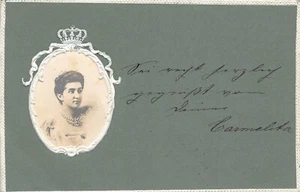 Sei recht herzlich
gegrüßt von
Deiner
Carmelita